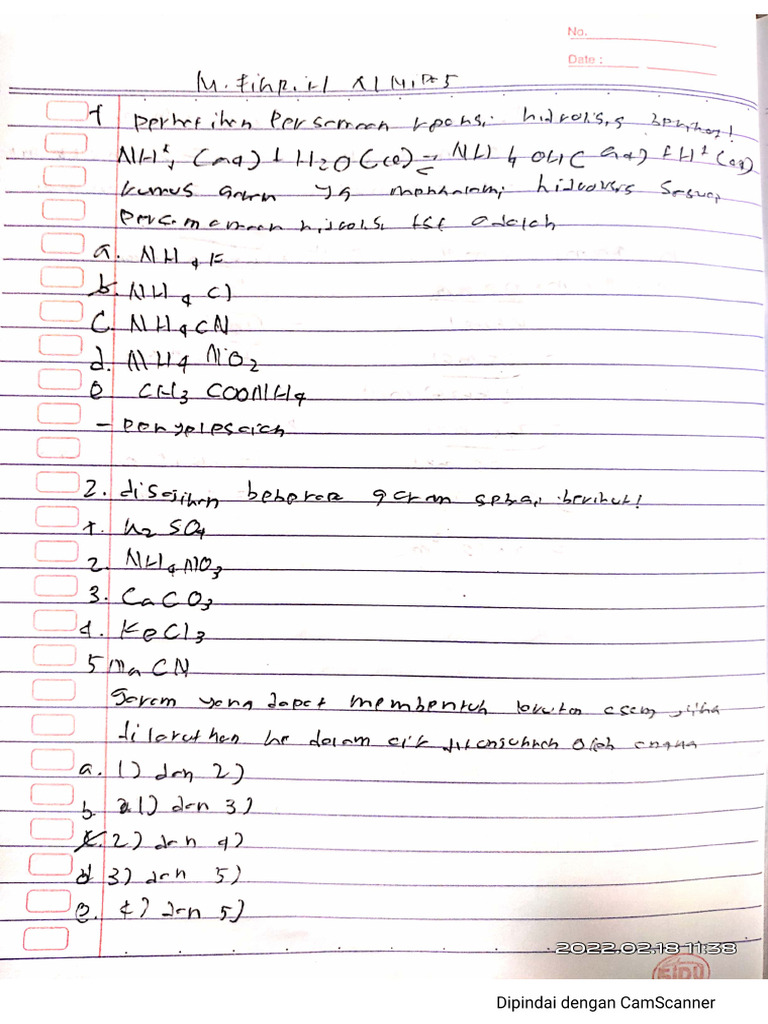 No.
Date :
XI MIPA5
1 perhatikan persamaan reaksi hidrolisis berikut!
NH⁺4 (aq) + H2O (l) ⇌ NH4OH( aq) + H⁺ (aq)
rumus garam yg mengalami hidrolisis sesuai
persamaan hidrolisis tst adalah
a. NH4F
b. NH4Cl
C. NH4CN
d. NH4 NO2
e CH3 COONH4
- penyelesaian
2. disajikan beberapa garam sebagai berikut!
1. K2 SO4
2. NH4NO3
3. CaCO3
4. FeCl3
5 NaCN
garam yang dapat membentuk larutan asam jika
dilarutkan ke dalam air ditunjukkan oleh angka
a. 1) dan 2)
b. 1) dan 3)
c. 2) dan 4)
d 3) dan 5)
e. 4) dan 5)
2022.02.18 11:38
SIDU
Dipindai dengan CamScanner